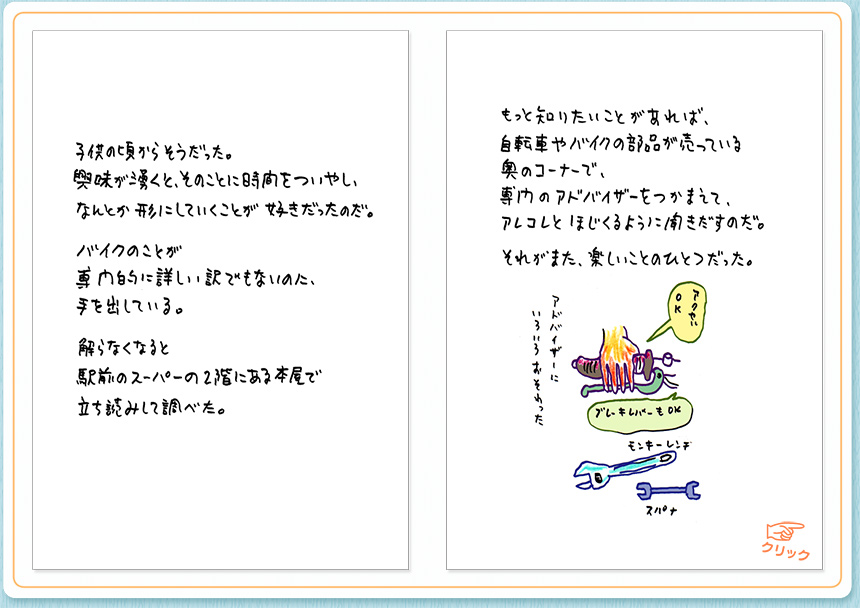 子供の頃からそうだった。
興味が湧くと、そのことに時間をついやし、
なんとか形にしていくことが好きだったのだ。
バイクのことが
専門的に詳しい訳でもないのに、
手を出している。
解らなくなると
駅前のスーパーの2階にある本屋で
立ち読みして調べた。
もっと知りたいことがあれば、
自転車やバイクの部品が売っている
奥のコーナーで、
専門のアドバイザーをつかまえて、
アレコレとほじくるように聞きだすのだ。
それがまた、楽しいことのひとつだった。
アドバイザーに
いろいろおそわった
アクセル
OK
ブレーキレバーもOK
モンキーレンチ
スパナ
クリック